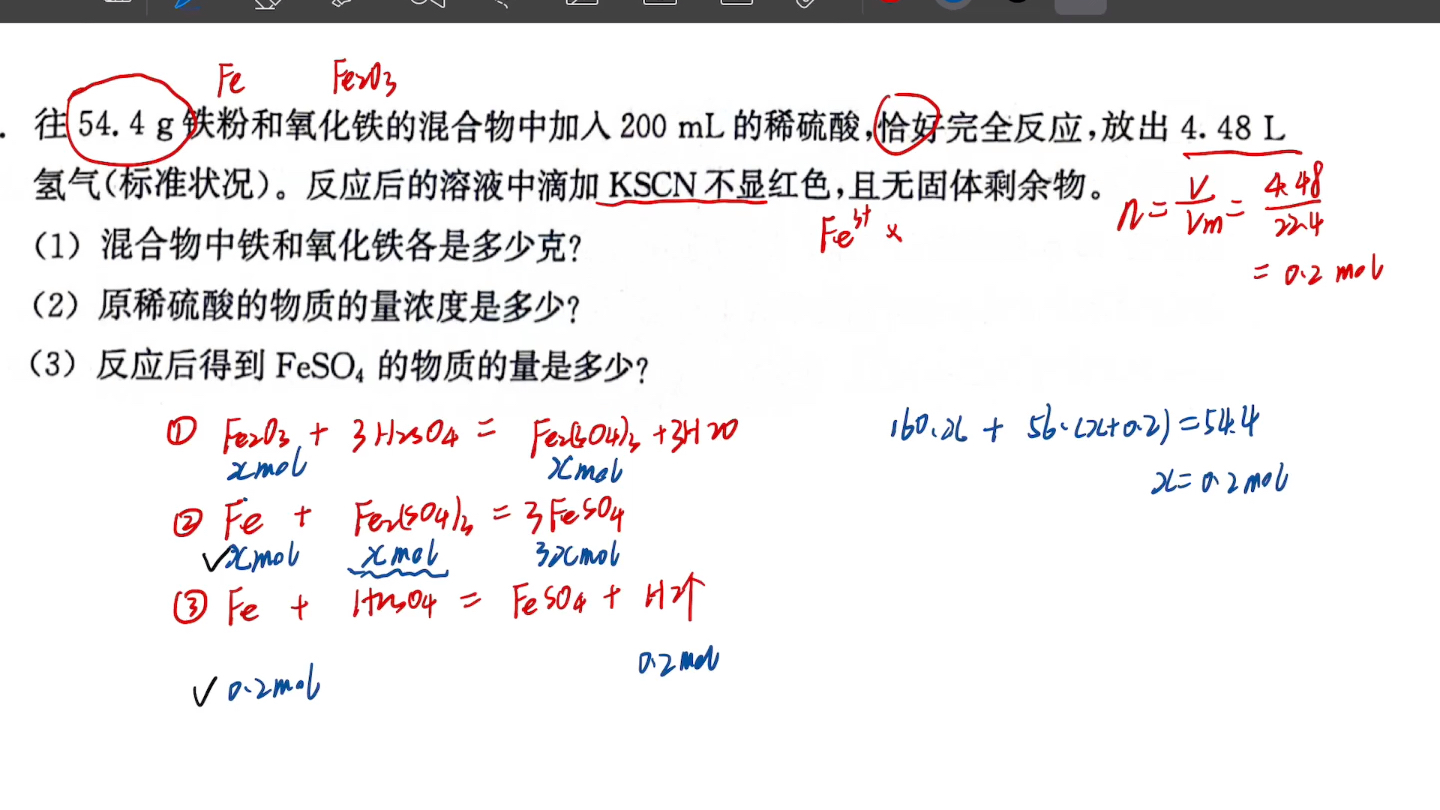 Fe Fe2O3
. 往 54.4 g 铁粉和氧化铁的混合物中加入 200 mL 的稀硫酸,恰好完全反应,放出 4.48 L
氢气(标准状况)。反应后的溶液中滴加 KSCN 不显红色,且无固体剩余物。
Fe³⁺ ×
n = V/Vm = 4.48/22.4
= 0.2 mol
(1) 混合物中铁和氧化铁各是多少克?
(2) 原稀硫酸的物质的量浓度是多少?
(3) 反应后得到 FeSO₄ 的物质的量是多少?
① Fe2O3 + 3H2SO4 = Fe2(SO4)3 + 3H2O
xmol xmol
② Fe + Fe2(SO4)3 = 3FeSO4
✓xmol xmol 3xmol
③ Fe + H2SO4 = FeSO4 + H2↑
0.2mol
✓ 0.2mol
160·x + 56·(x+0.2) = 54.4
x = 0.2mol